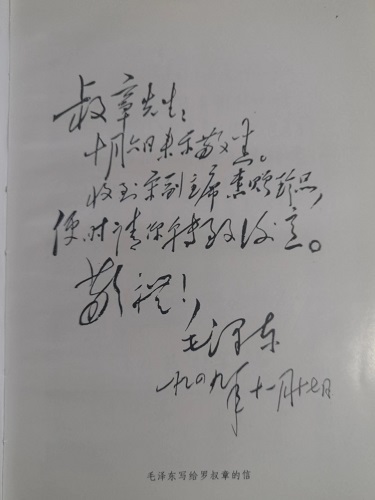 叔章先生：
十月六日来示敬悉。
收到宋副主席惠赠珍品，
便时请你转致谢意。
敬礼！
毛泽东
一九四九年十一月十七日
毛泽东写给罗叔章的信